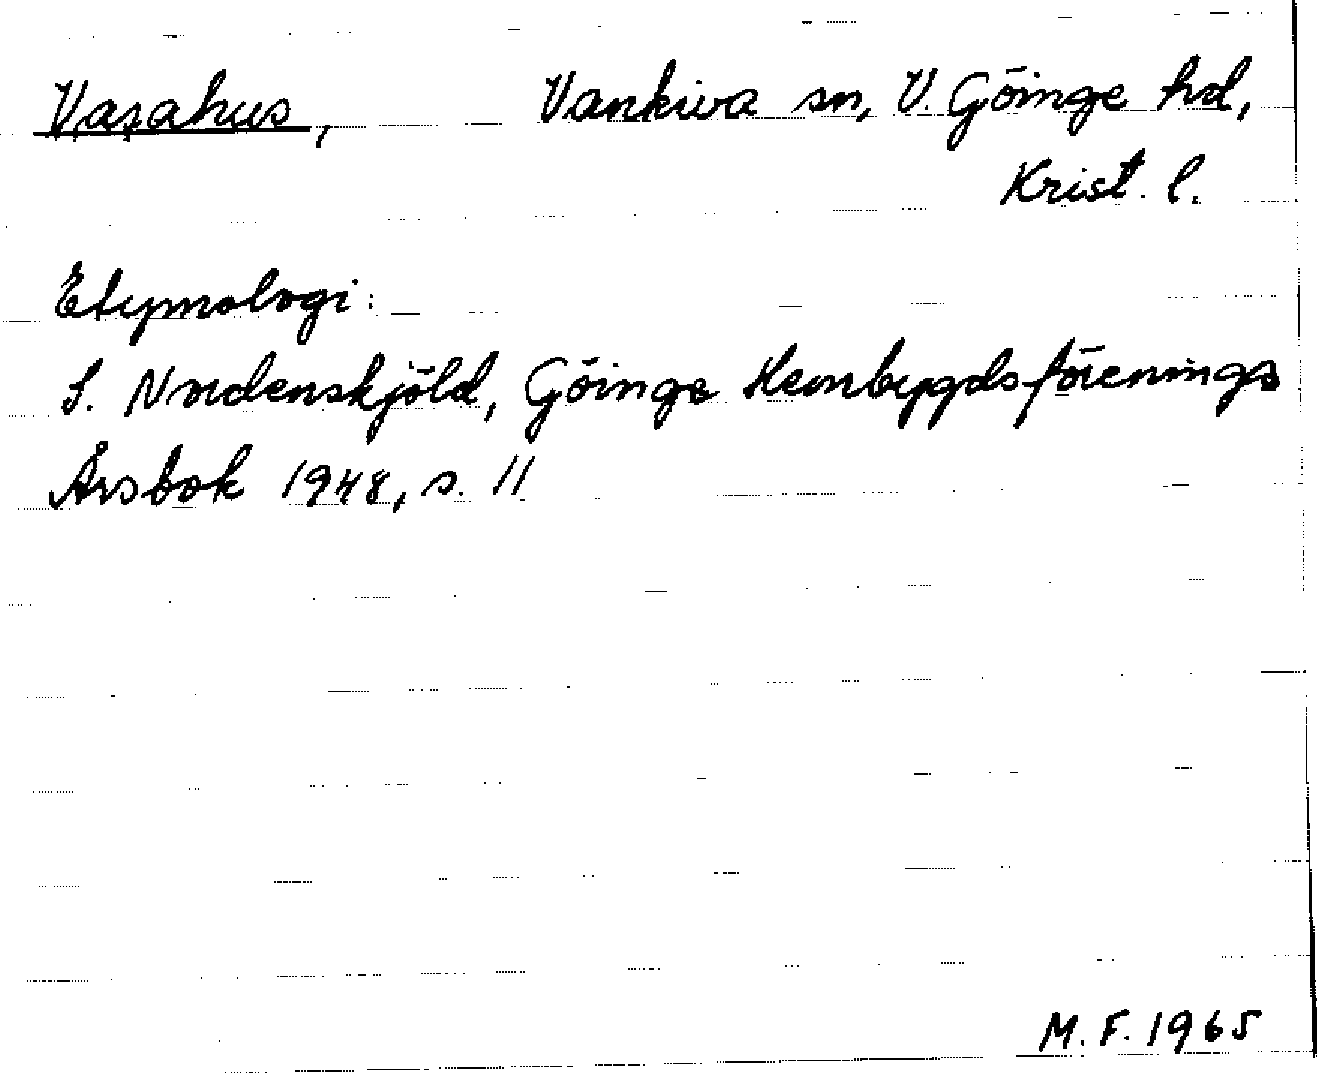 Vasahus, Vankiva sn, V. Göinge hd,
Krist. l.
Etymologi:
S. Nordenskjöld, Göinge Hembygdsförenings
Årsbok 1948, s. 11
M. F. 1965